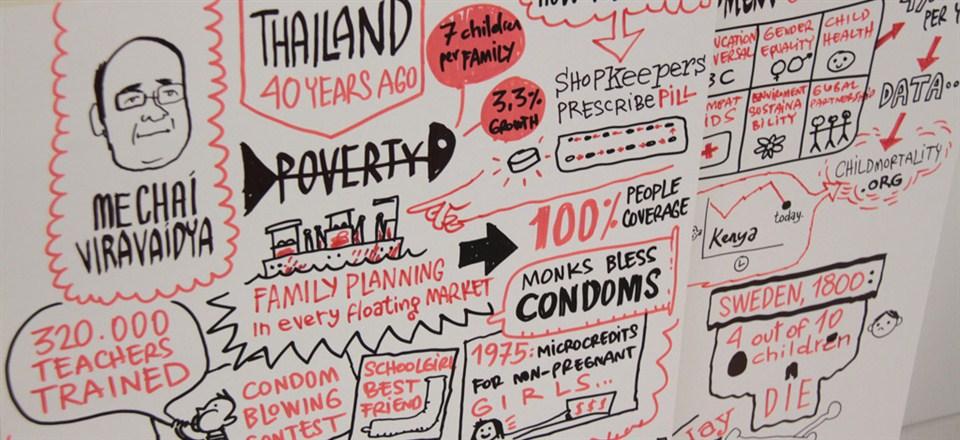 THAILAND
40 YEARS AGO
7 children
per FAMILY
3,3%
GROWTH
SHOPKeepers
PRESCRIBE PILL
MECHAÍ
VIRAVAÍDYA
POVERTY
FAMILY PLANNING
in every floating MARKET
100% PEOPLE
COVERAGE
MONKS BLESS
CONDOMS
320.000
TEACHERS
TRAINED
CONDOM
BLOWING
CONTEST
SCHOOLGIRL
BEST
FRIEND
1975: MICROCREDITS
FOR NON-PREGNANT
GIRLS...
$$$
GENDER
EQUALITY
CHILD
HEALTH
ENVIRONMENT
SUSTAINA
BILITY
GLOBAL
PARTNERSHIP
DATA...
CHILDMORTALITY
.ORG
today.
Kenya
SWEDEN, 1800:
4 out of 10
children
DIE